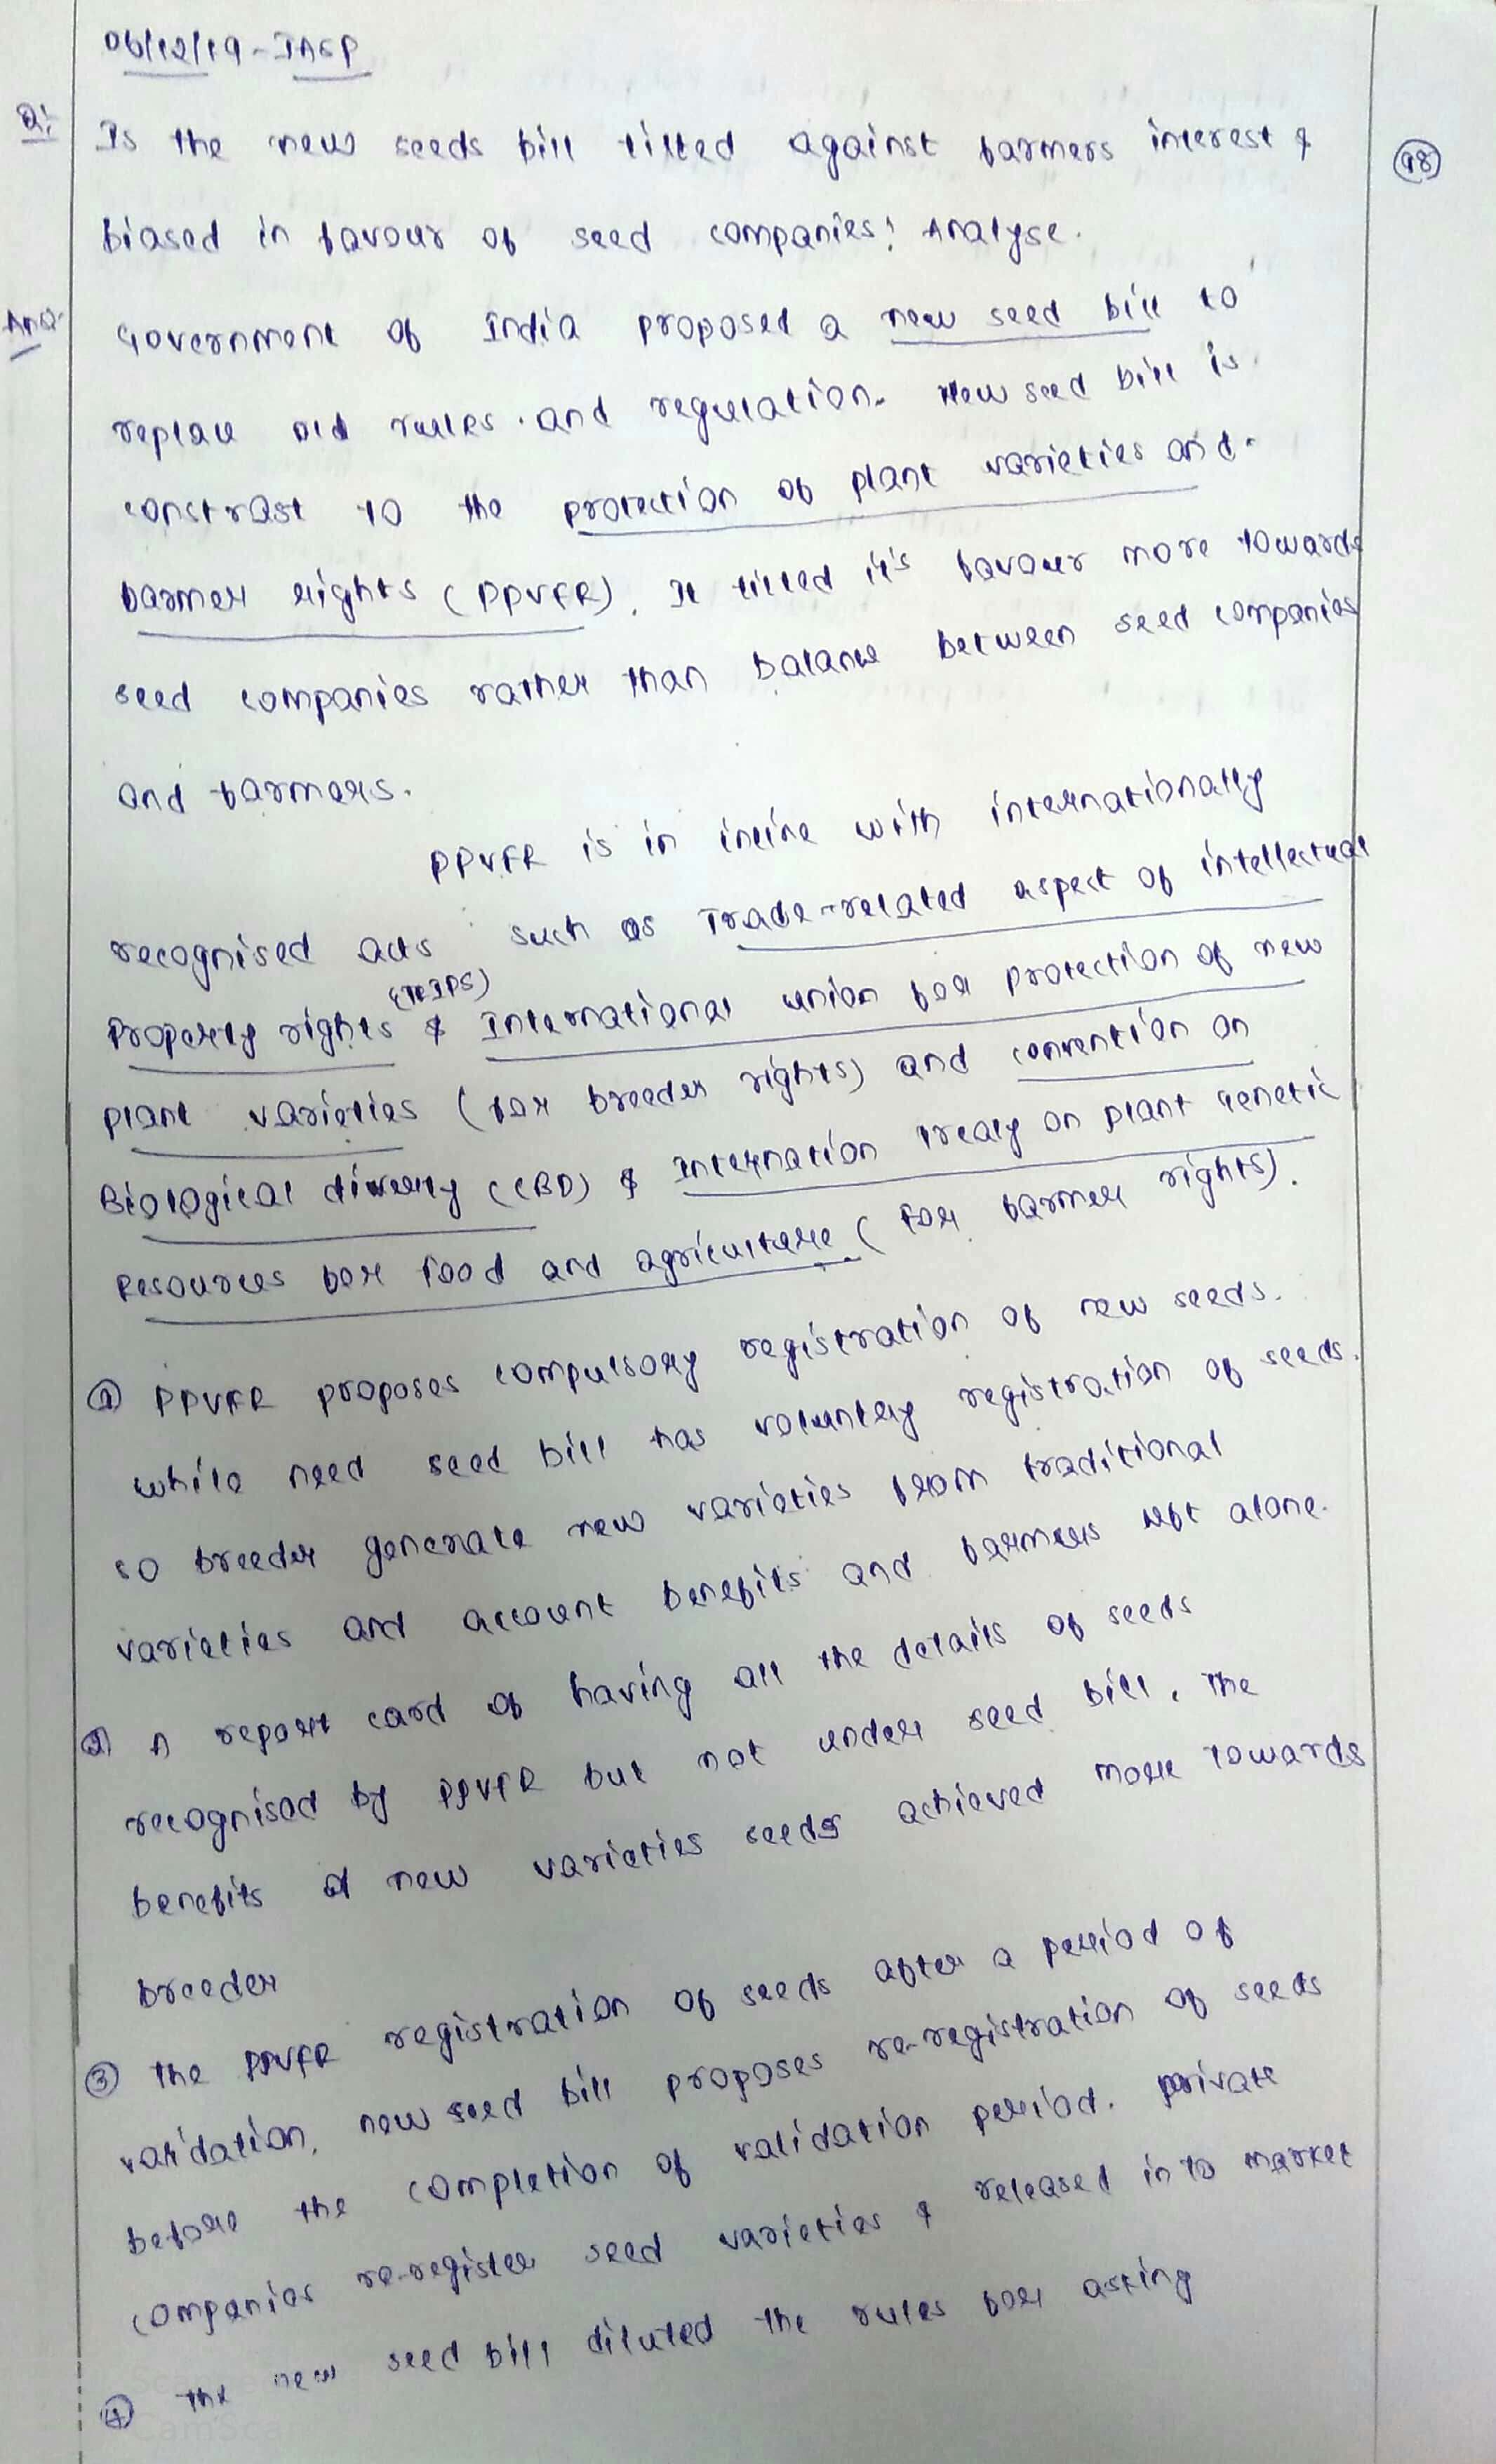 06/12/19 - IASP
Q: Is the new seeds bill tilted against farmers interest &
98
biased in favour of seed companies? Analyse.
Ans: Government of India proposed a new seed bill to
replace old rules and regulation. New seed bill is
constrast to the protection of plant varieties and
farmer rights (PPVFR). It tilted it's favour more towards
seed companies rather than balance between seed companies
and farmers.
PPVFR is in inline with internationally
recognised acts such as Trade-related aspect of intellectual
Property rights (TRIPS) & International union for protection of new
plant varieties (for breeder rights) and convention on
Biological diversity (CBD) & Internation treaty on plant Genetic
Resources for food and agriculture (For farmer rights).
① PPVFR proposes compulsory registration of new seeds.
while need seed bill has voluntery registration of seeds.
so breeder generate new varieties from traditional
varieties and account benefits and farmers left alone.
② A report card of having all the details of seeds
recognised by PPVFR but not under seed bill. The
benefits of new varieties seeds achieved more towards
breeder
③ The PPVFR registration of seeds after a period of
validation, new seed bill proposes re-registration of seeds
before the completion of validation period. private
companies re-register seed varieties & released in to market
④ The new seed bill diluted the rules for asking